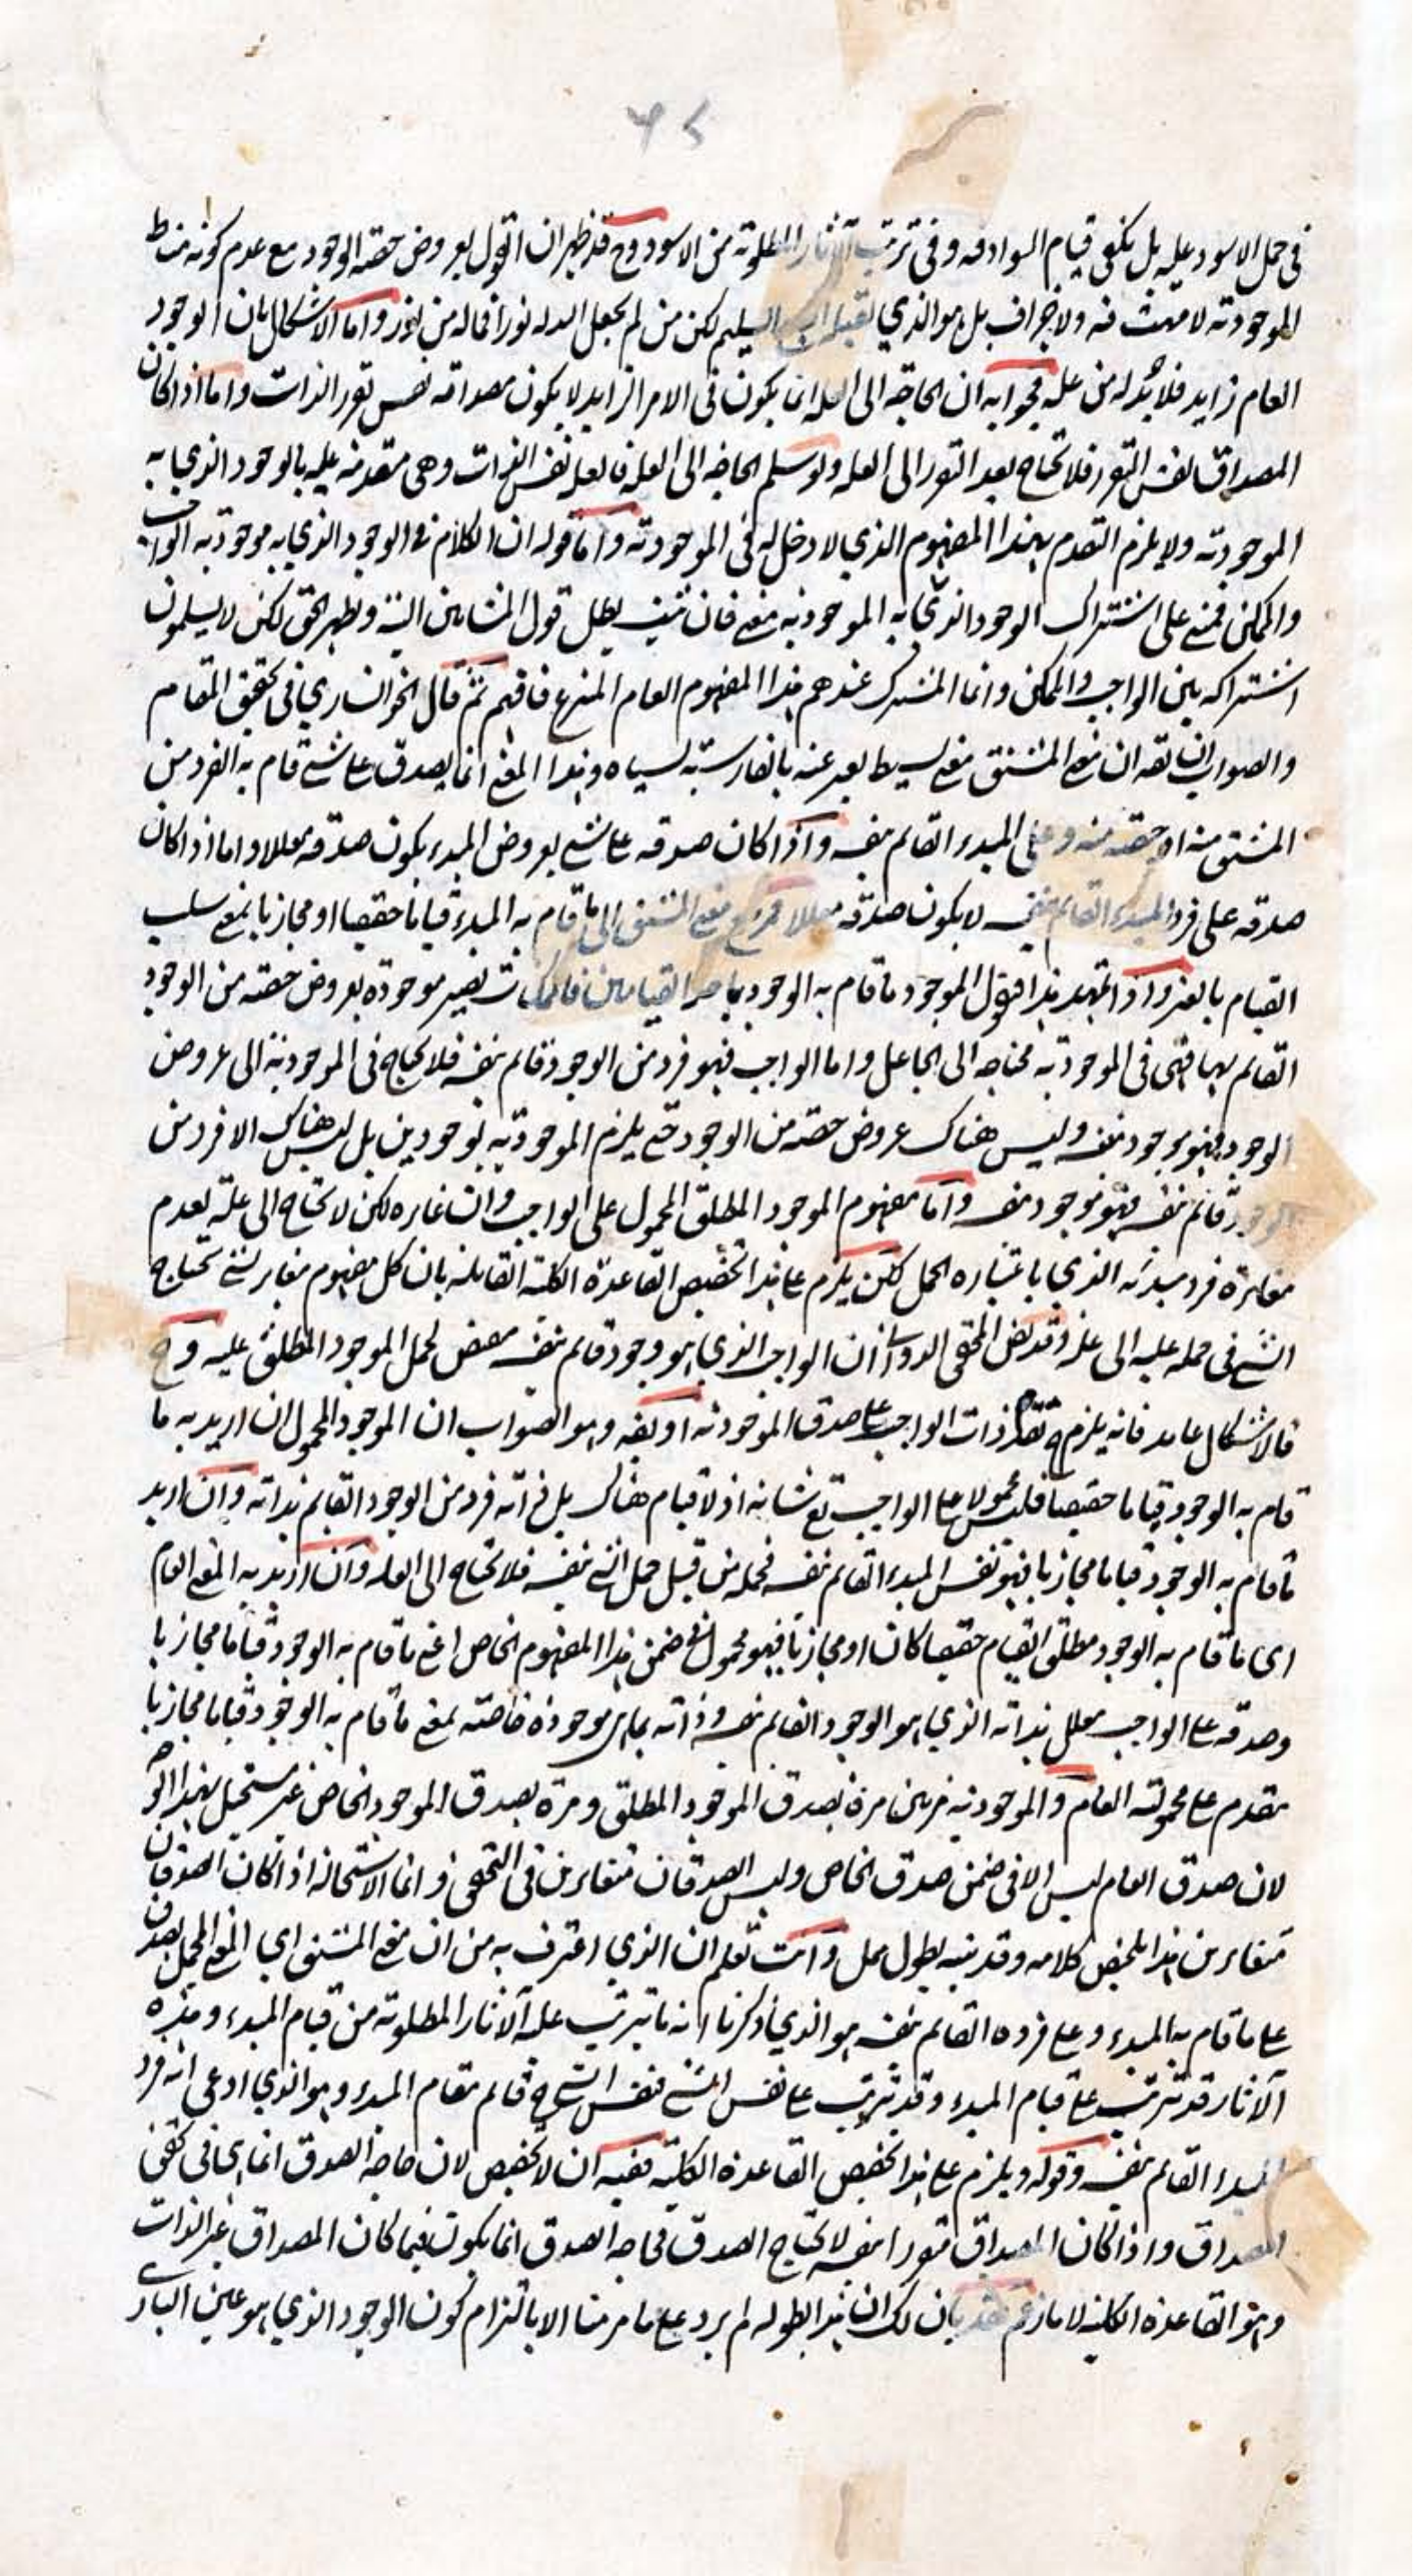 في حمل الاسود عليه بل يكفي قيام السواد به وفي ترتب الآثار المطلوبة من الاسود وح قد ظهر ان القول بعروض حصته الوجود مع عدم كونه مناط
الموجودية لا مهث فيه ولا جزاف بل هو الذي يقبله السليم لكن من لم يجعل الله له نورا فما له من نور واما الاشكال بان الوجود
العام زايد فلا بد له من علة فجوابه ان الحاجة الى العلة انما يكون في الامر الزايد لا يكون مصداقه نفس تقرر الذات واما اذا كان
المصداق نفس التقرر فلا تحتاج بعد التقرر الى العلة ولو سلم الحاجة الى العلة فالعلة نفس الذات وهي متقدمة عليه بالوجود الذي به
الموجودية ولا يلزم التقدم بهذا المفهوم الذي لا دخل له في الموجودية واما قوله ان الكلام في الوجود الذي به موجودية الواجب
والممكن فمبني على اشتراك الوجود الذي به الموجودية معنى فان ثبت يبطل قول المشائين البتة ويظهر الحق لكن لا يسلمون
اشتراكه بين الواجب والممكن وانما المشترك عندهم هذا المفهوم العام المنتزع فافهم ثم قال الخوانساري في تحقيق المقام
والصواب ان يقه ان معنى المشتق معنى بسيط يعبر عنه بالفارسية بسياه وهذا المعنى انما يصدق على شيء قام به الفرد من
المشتق منه او حصته منه وعلى المبدء القائم بنفسه واذا كان صدقه على شيء بعروض المبدء يكون صدقه معللا واما اذا كان
صدقه على فرد المبدء القائم بنفسه لا يكون صدقه معللا فمرجع معنى المشتق الى ما قام به المبدء قياما حقيقيا او مجازيا بمعنى سلب
القيام بالغير واذا تمهد هذا فنقول الموجود ما قام به الوجود باحد القيامين فالممكنات تصير موجودة بعروض حصته من الوجود
القائم بها فهي في الموجودية محتاجة الى الجاعل واما الواجب فهو فرد من الوجود قائم بنفسه فلا يحتاج في الموجودية الى عروض
الوجود فهو موجود بنفسه وليس هناك عروض حصته من الوجود حتى يلزم الموجودية بوجودين بل ليس هناك الا فرد من
الوجود قائم بنفسه فهو موجود بنفسه واما مفهوم الموجود المطلق المحمول على الواجب وان غايره لكن لا تحتاج الى علة لعدم
مغايرة فرد مبدئه الذي باعتباره الحمل لكن يلزم على هذا تخصيص القاعدة الكلية القائلة بان كل مفهوم مغاير لشيء تحتاج
الشيء في حمله عليه الى علة وقد نص المحقق الدواني ان الواجب الذي هو وجود قائم بنفسه مقتض لحمل الموجود المطلق عليه وح
فالاشكال عايد فانه يلزم ح تقدم ذات الواجب على صدق الموجودية او يقه وهو الصواب ان الموجود المحمول ان اريد به ما
قام به الوجود قياما حقيقيا فليس محمولا على الواجب تع شانه اذ لا قيام هناك بل ذاته فرد من الوجود القائم بذاته وان اريد
ما قام به الوجود قياما مجازيا فهو نفس المبدء القائم بنفسه فحمله من قبيل حمل الشيء بنفسه فلا تحتاج الى العلة وان اريد به المعنى العام
اى ما قام به الوجود مطلق القيام حقيقيا كان او مجازيا فهو محمول في ضمن هذا المفهوم الخاص اعني ما قام به الوجود قياما مجازيا
وصدقه على الواجب معلل بذاته الذي هو الوجود القائم بنفسه وذاته بما هي موجودة خاصته بمعنى ما قام به الوجود قياما مجازيا
متقدم على محمولية العام والموجودية مرتين مرة بصدق الموجود المطلق ومرة بصدق الموجود الخاص غير مستحيل بهذا الوجه
لان صدق العام ليس الا في ضمن صدق الخاص وليس الصدقان متغايرين في التحقق وانما الاستحالة اذا كان الصدقان
متغايرين هذا ملخص كلامه وقد بينه بطول ممل وانت تعلم ان الذي اعترف به من ان معنى المشتق اي المعنى المجمل يصدق
على ما قام به المبدء وعلى فرده القائم بنفسه هو الذي ذكرنا انه ما تيرتب عليه الآثار المطلوبة من قيام المبدء وهذه
الآثار قد تترتب على قيام المبدء وقد تترتب على نفس الشيء فنفس الشيء ح قائم مقام المبدء وهو الذي ادعى انه فرد
المبدء القائم بنفسه وقوله ويلزم على هذا تخصيص القاعدة الكلية ففيه ان لا تخصيص لان حاجة الصدق انما هي في تحقق
المصداق واذا كان المصداق متقررا بنفسه لا تحتاج الصدق فحاجة الصدق انما يكون فيما كان المصداق غير الذات
وهو القاعدة الكلية لا ما زعم فقد بان لك ان هذا بطوله لم يرد على ما مر منا الا بالتزام كون الوجود الذي هو عين البارى